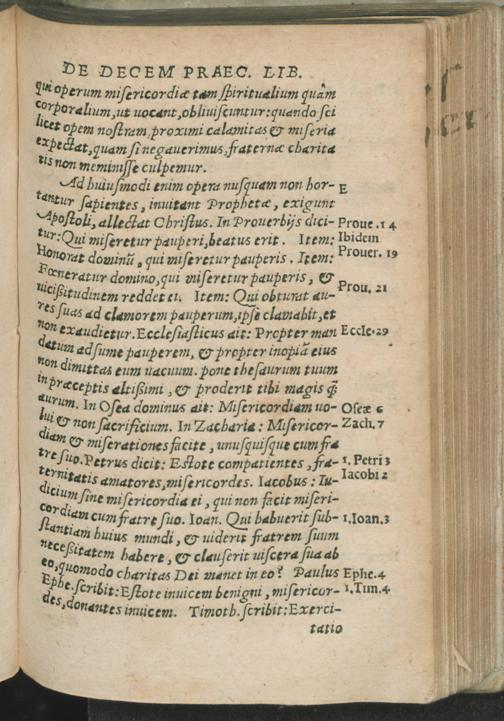 DE DECEM PRAEC. LIB.
qui operum misericordiæ tam spiritualium quàm
corporalium, ut uocant, obliuiscuntur: quando sci
licet opem nostram, proximi calamitas & miseria
expectat, quam si negauerimus, fraternæ charita
tis non meminisse culpemur.
Ad huiusmodi enim opera nusquam non hor- E
tantur sapientes, inuitant Prophetæ, exigunt
Apostoli, allectat Christus. In Prouerbijs dici- Proue. 14
tur: Qui miseretur pauperi, beatus erit. Item: Ibidem
Honorat dominũ, qui miseretur pauperis. Item: Prouer. 19
Fœneratur domino, qui miseretur pauperis, &
uicißitudinem reddet ei. Item: Qui obturat au- Prou. 21
res suas ad clamorem pauperum, ipse clamabit, et
non exaudietur. Ecclesiasticus ait: Propter man Eccle. 29
datum adsume pauperem, & propter inopiã eius
non dimittas eum uacuum. pone thesaurum tuum
in præceptis altißimi, & proderit tibi magis ꝗ̃
aurum. In Osea dominus ait: Misericordiam uo- Oseæ 6
lui & non sacrificium. In Zacharia: Misericor- Zach. 7
diam & miserationes facite, unusquisque cum fra
tre suo. Petrus dicit: Estote compatientes, fra- 1. Petri 3
ternitatis amatores, misericordes. Iacobus: Iu- Iacobi 2
dicium sine misericordia ei, qui non facit miseri-
cordiam cum fratre suo. Ioan. Qui habuerit sub- 1. Ioan. 3
stantiam huius mundi, & uiderit fratrem suum
neceßitatem habere, & clauserit uiscera sua ab
eo, quomodo charitas Dei manet in eo? Paulus Ephe. 4
Ephe. scribit: Estote inuicem benigni, misericor- 1. Tim. 4
des, donantes inuicem. Timoth. scribit: Exerci-
tatio